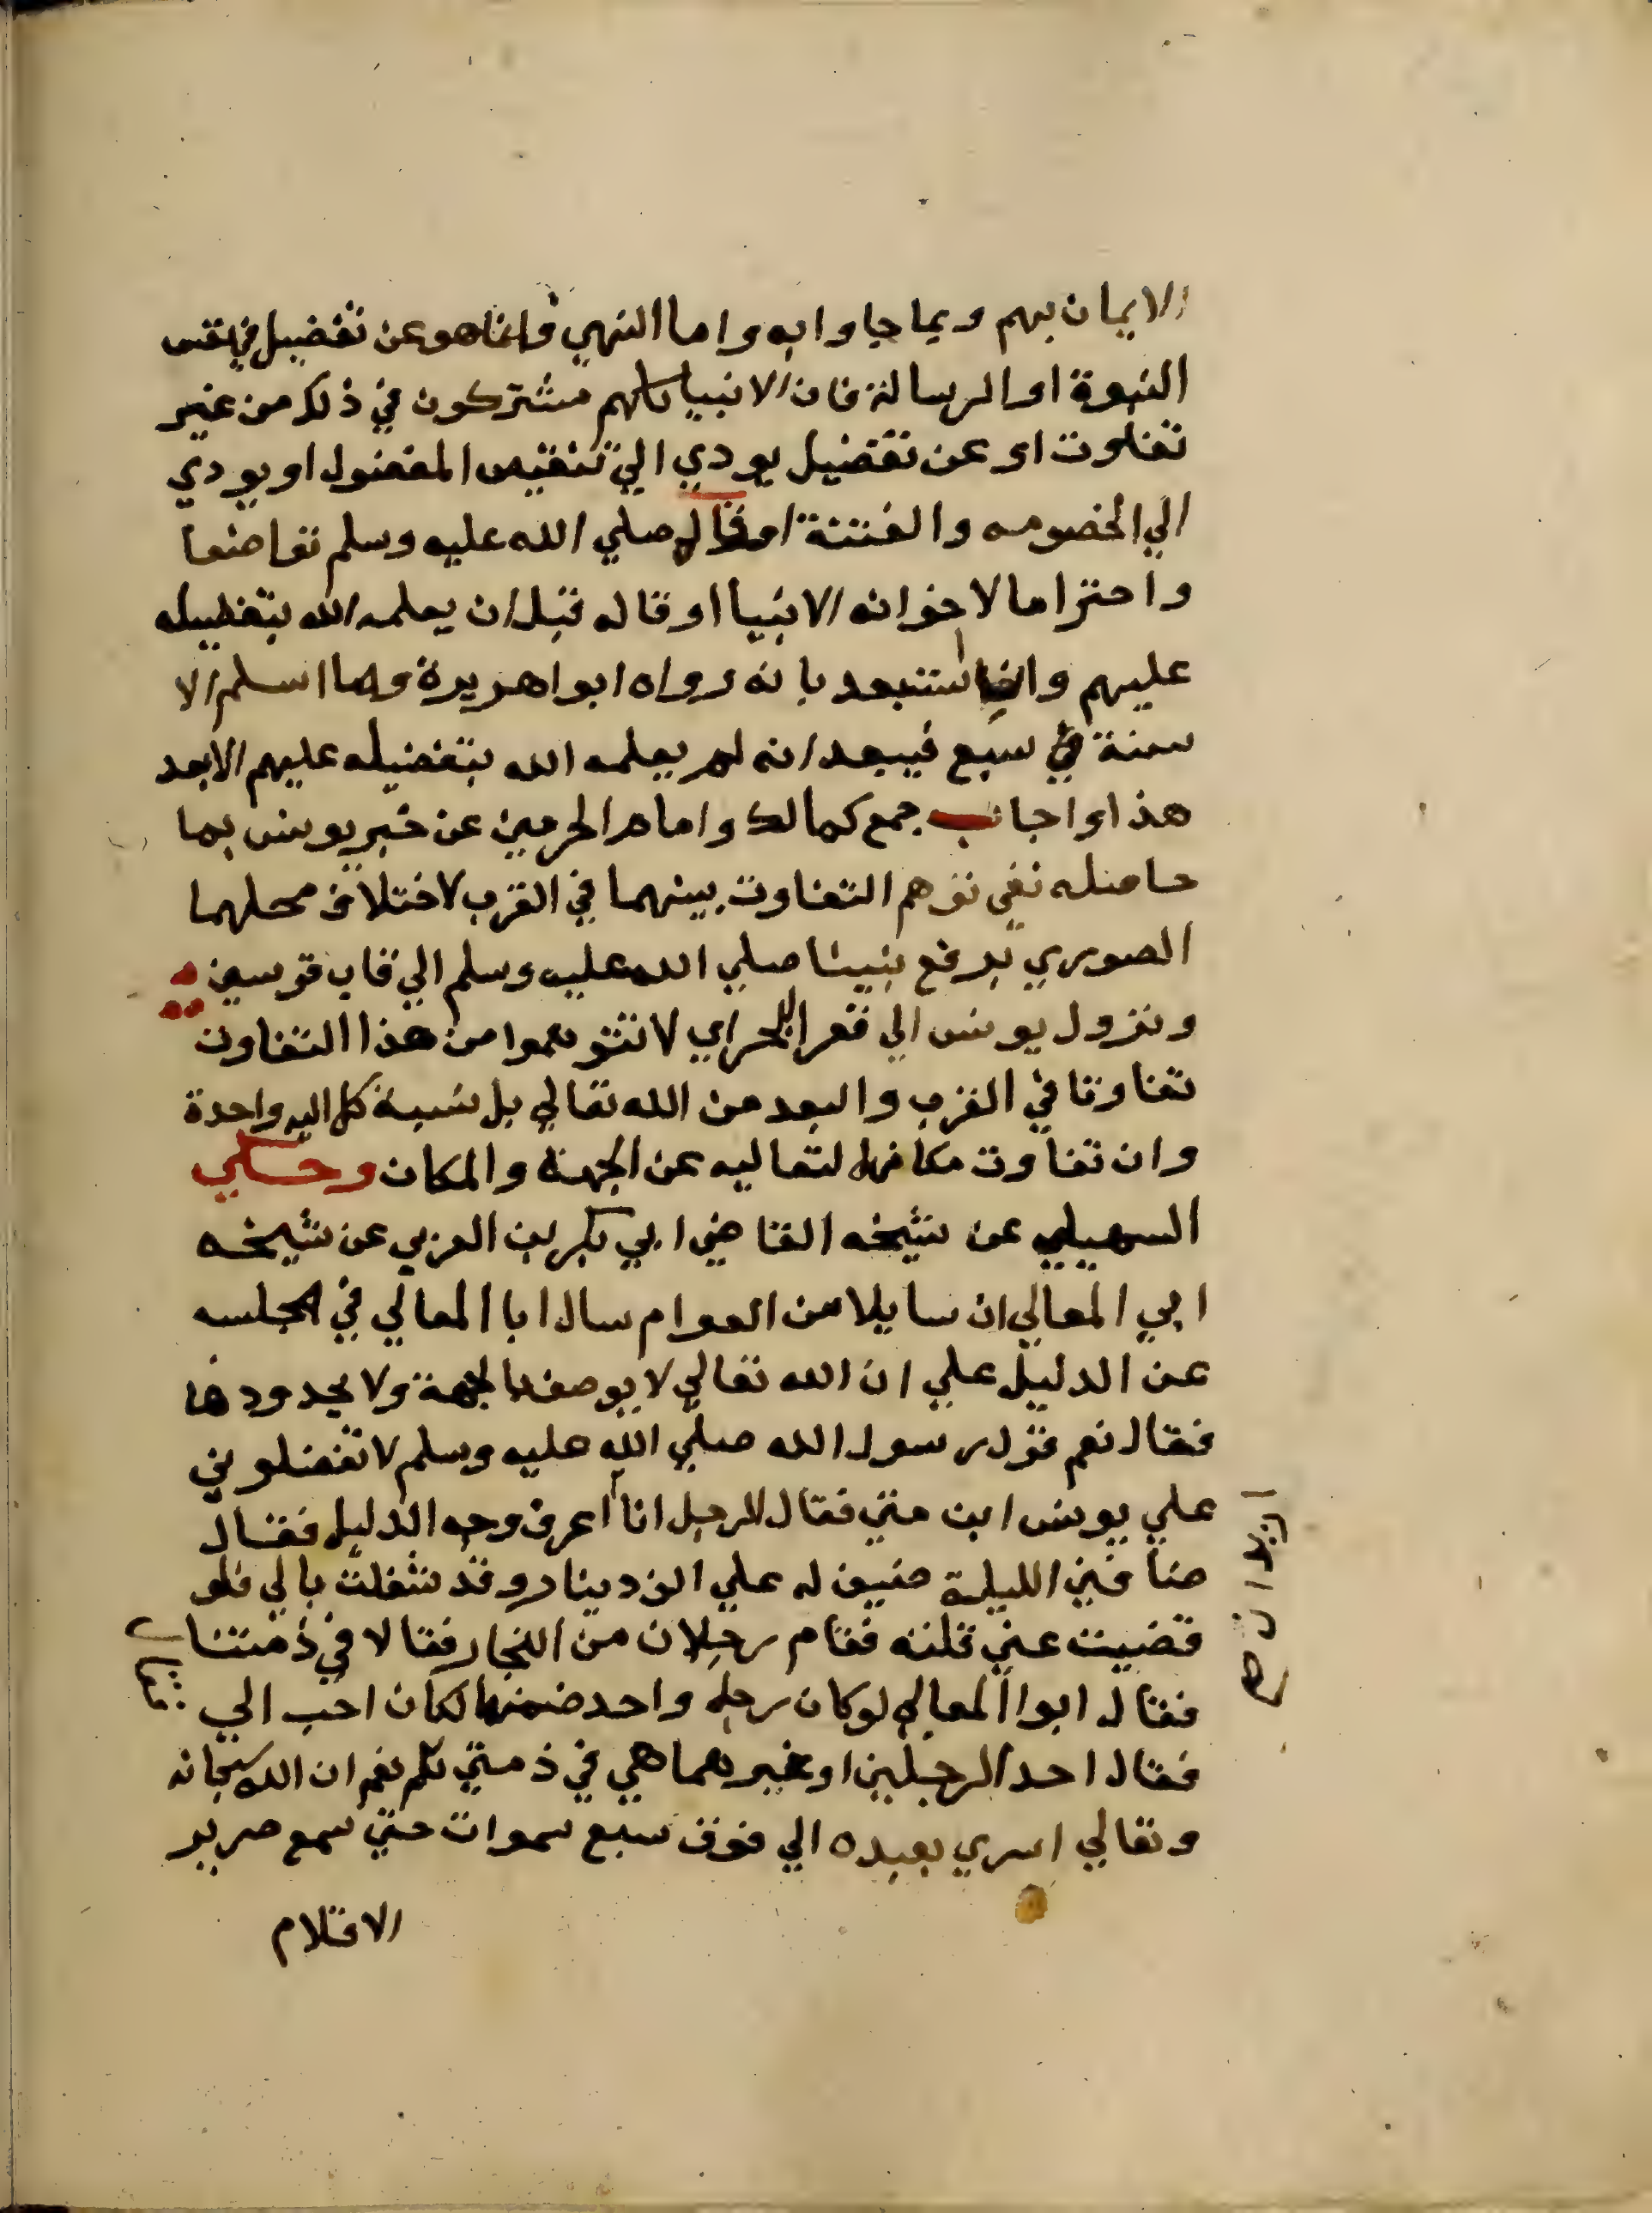 الايمان بهم وبما جاوا به واما النهي فانما هو عن تفضيل في نفس
النبوة او الرسالة فان الانبيا كلهم مشتركون في ذلك من غير
تفاوت او عن تفضيل يودي الي تنقيص المفضول او يودي
الي الخصومه والفتنة او قاله صلي الله عليه وسلم تواضعا
واحتراما لاخوانه الانبيا او قاله قبل ان يعلمه الله بتفضيله
عليهم وان استبعد بانه رواه ابوا هريرة وما اسلم الا
سنة سبع فيبعد انه لم يعلمه الله بتفضيله عليهم الا بعد
هذا واجاب جمع كمالك وامام الحرمين عن خبر يونس بما
حاصله نفي توهم التفاوت بينهما في القرب لاختلاف محلهما
الصوري برفع نبينا صلي الله عليه وسلم الي قاب قوسين
ونزول يونس الي قعر البحر اي لا تتوهموا من هذا التفاوت
تفاوتا في القرب والبعد من الله تعالي بل نسبة كل اليه واحدة
وان تفاوت مكانهما لتعاليه عن الجهة والمكان وحكي
السهيلي عن شيخه القاضي ابي بكر بن العربي عن شيخه
ابي المعالي ان سايلا من العوام سال ابا المعالي في مجلسه
عن الدليل علي ان الله تعالي لا يوصف بالجهة ولا يحدود ها
فقال نعم قول رسول الله صلي الله عليه وسلم لا تفضلوني
علي يونس ابن متي فقال الرجل انا اعرف وجه الدليل فقال
ضافني الليلة ضيف له علي الف دينار وقد شغلت بالي فلو
قضيت عني قلته فقام رجلان من التجار فقالا في ذمتنا
فقال ابوا المعالي لو كان رجل واحد ضمنها لكان احب الي
فقال احد الرجلين او غيرهما هي في ذمتي نعم ان الله سبحانه
وتعالي اسري بعبده الي فوق سبع سموات حتي سمع صرير
الاقلام
اريد ان صح